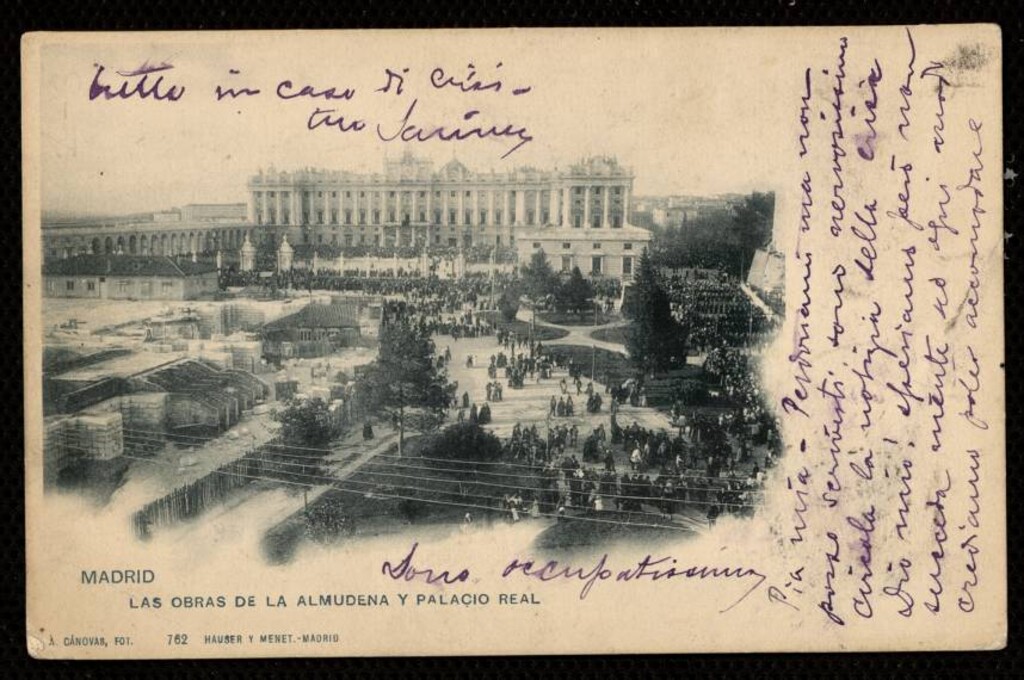 Pia mia - Perdonami ma non
posso scriverti sono nervosissimo
circola la notizia della crisi
Dio mio! speriamo però non
succeda niente ed ogni modo
crediamo poter accomodare
tutto in caso di crisi -
tuo
Sono occupatissimo
MADRID
LAS OBRAS DE LA ALMUDENA Y PALACIO REAL
A. CÁNOVAS, FOT. 762 HAUSER Y MENET.-MADRID